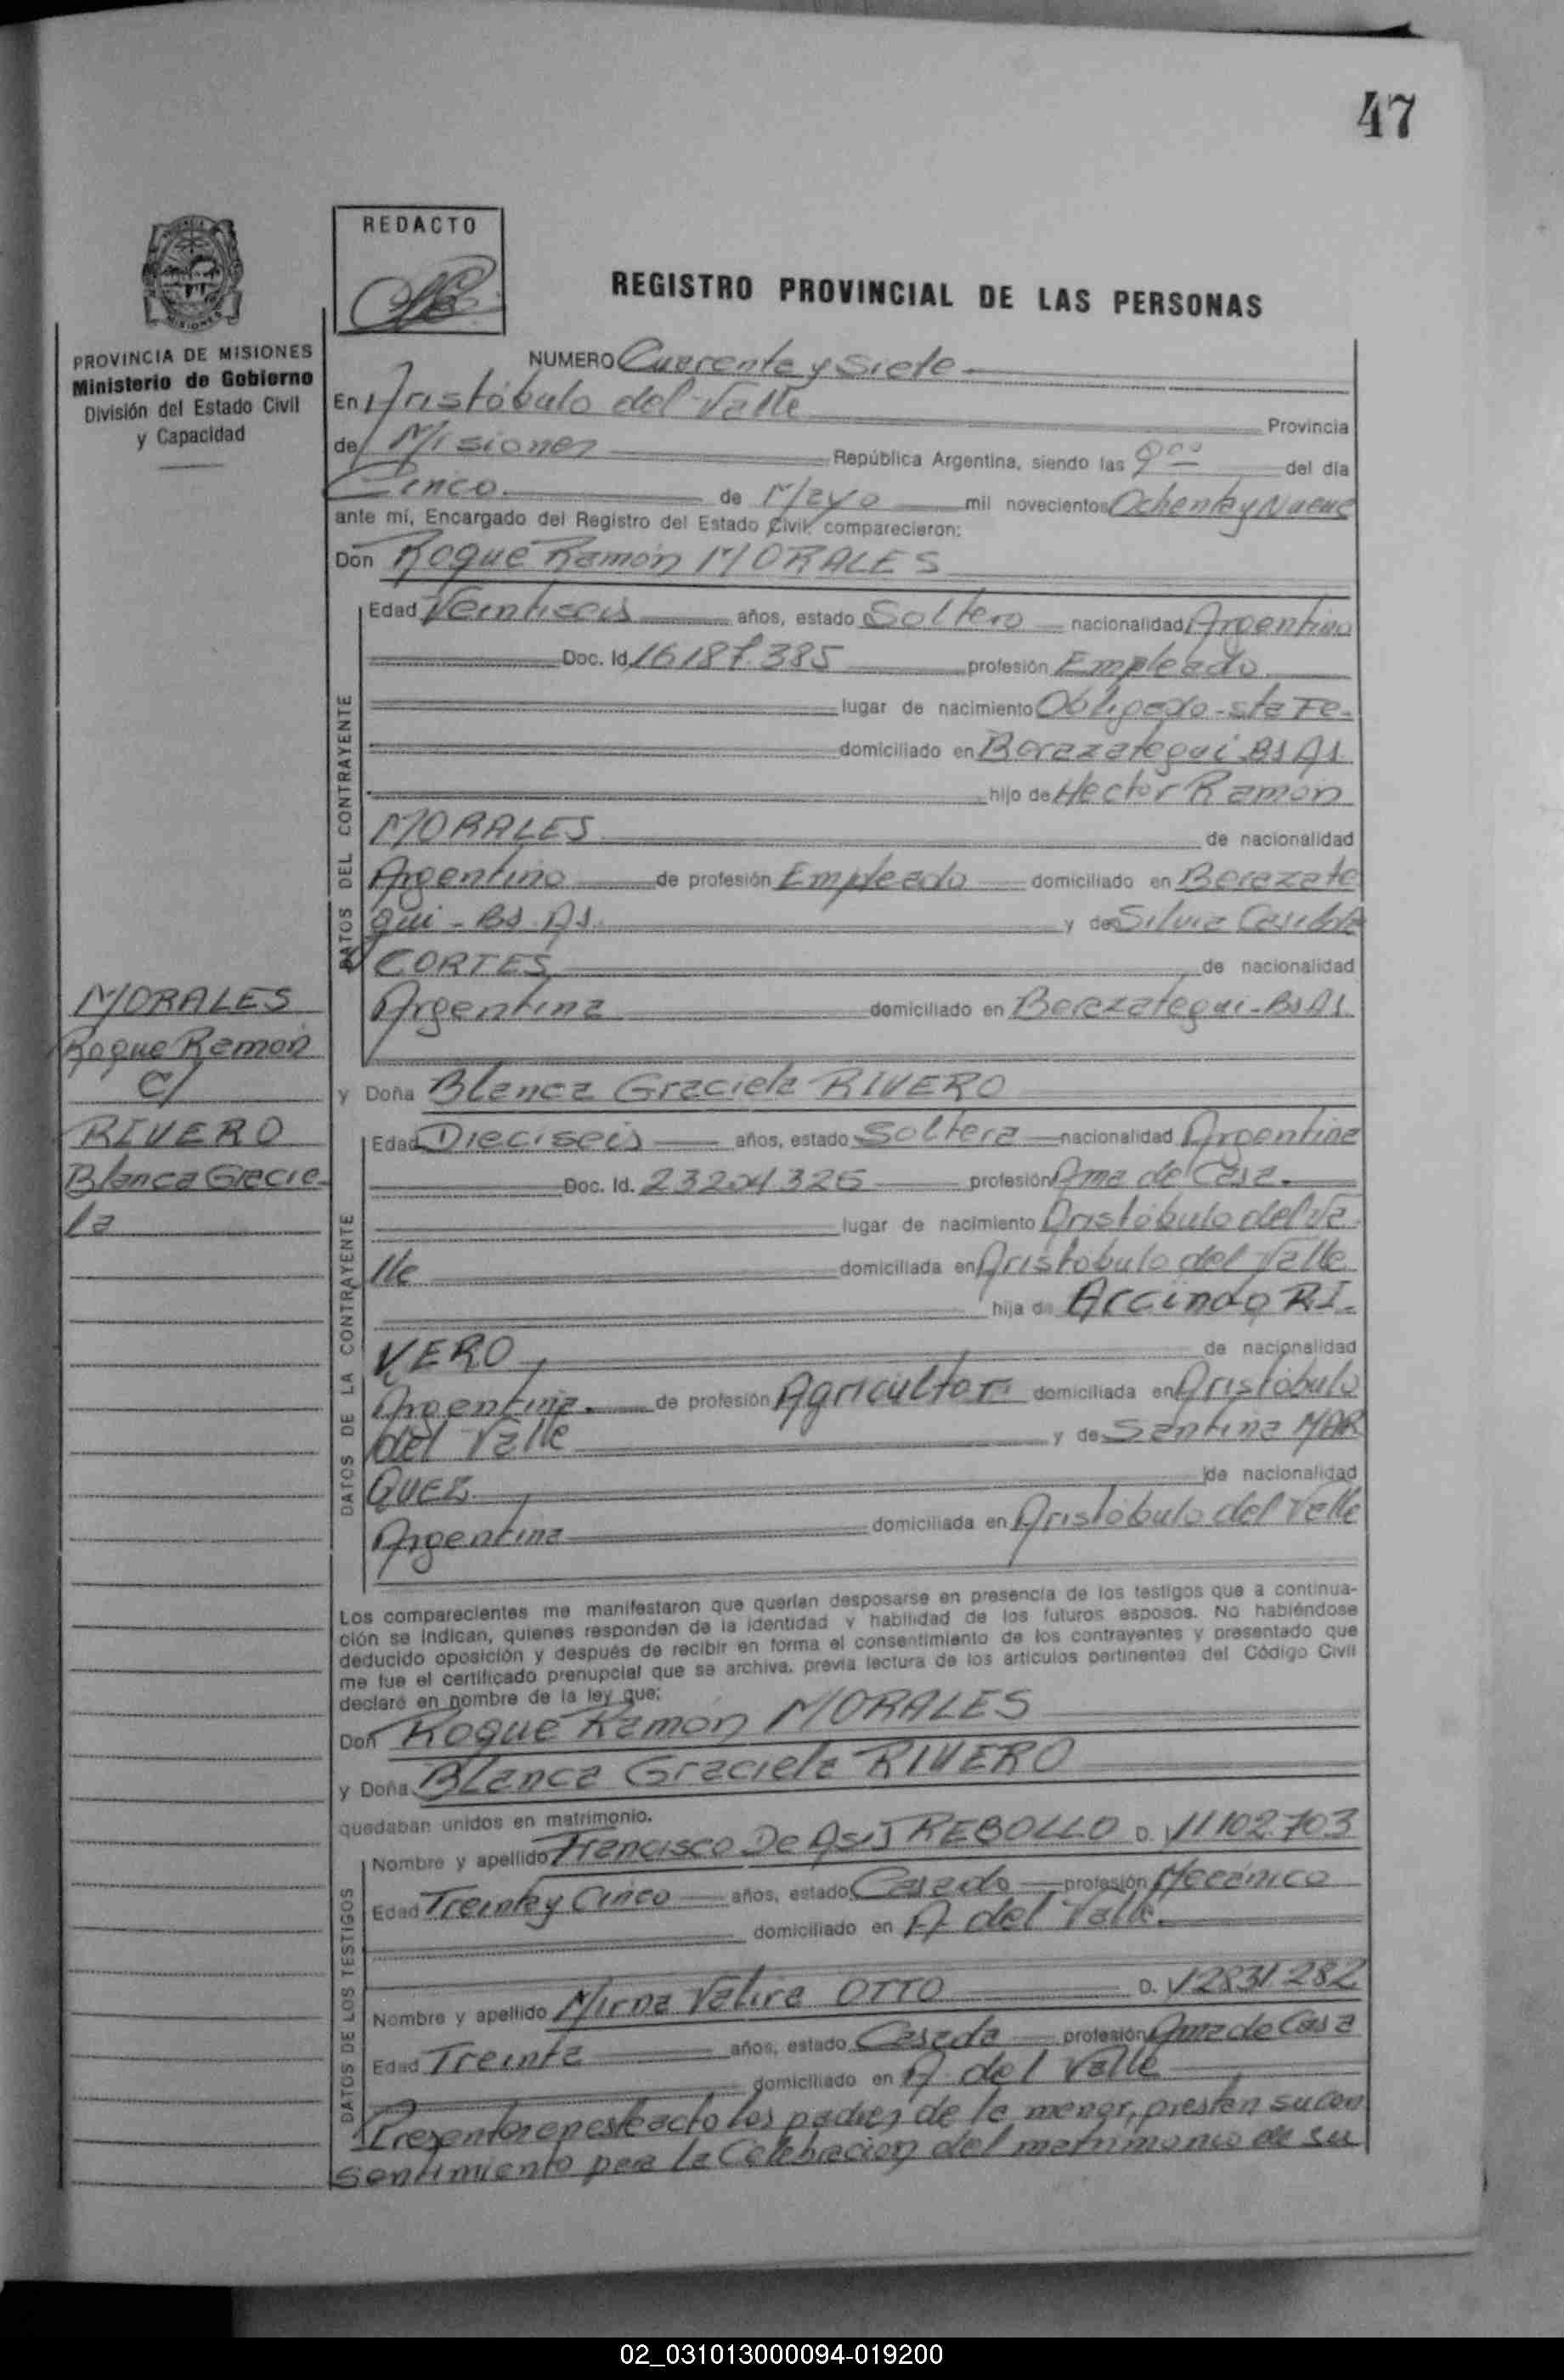 47
REDACTO
REGISTRO PROVINCIAL DE LAS PERSONAS
PROVINCIA DE MISIONES
Ministerio de Gobierno
División del Estado Civil
y Capacidad
NUMERO Cuarenta y Siete
En Aristóbulo del Valle
Provincia
de Misiones República Argentina, siendo las 9 00 del día
Cinco de Mayo mil novecientos Ochenta y Nueve
ante mí, Encargado del Registro del Estado Civil comparecieron:
Don Roque Ramón MORALES
Edad Veintiseis años, estado Soltero nacionalidad Argentino
Doc. Id. 16187.385 profesión Empleado
lugar de nacimiento Obligado - Sta Fe-
domiciliado en Berazategui Bs As
hijo de Hector Ramón
MORALES de nacionalidad
Argentino de profesión Empleado domiciliado en Berazate
gui - Bs. As. y de Silvia
CORTES de nacionalidad
Argentina domiciliado en Berazategui - Bs As
DATOS DEL CONTRAYENTE
MORALES
Roque Ramón
C/
RIVERO
Blanca Gracie-
la
y Doña Blanca Graciela RIVERO
Edad Dieciseis años, estado Soltera nacionalidad Argentina
Doc. Id. 23204326 profesión Ama de Casa.
lugar de nacimiento Aristóbulo del Va
lle domiciliada en Aristobulo del Valle
hija de Arcindo RI-
VERO de nacionalidad
Argentina de profesión Agricultor domiciliada en Aristóbulo
del Valle y de Santina MAR
QUEZ de nacionalidad
Argentina domiciliada en Aristóbulo del Valle
DATOS DE LA CONTRAYENTE
Los comparecientes me manifestaron que querían desposarse en presencia de los testigos que a continua-
ción se indican, quienes responden de la identidad y habilidad de los futuros esposos. No habiéndose
deducido oposición y después de recibir en forma el consentimiento de los contrayentes y presentado que
me fue el certificado prenupcial que se archiva, previa lectura de los artículos pertinentes del Código Civil
declaré en nombre de la ley que:
Don Roque Ramón MORALES
y Doña Blanca Graciela RIVERO
quedaban unidos en matrimonio.
Nombre y apellido Francisco De Asis REBOLLO D. 11102.703
Edad Treinta y Cinco años, estado Casado profesión Mecánico
domiciliado en A del Valle
Nombre y apellido Mirna OTTO D. 12831282
Edad Treinta años, estado Casada profesión Ama de Casa
domiciliado en A. del Valle
DATOS DE LOS TESTIGOS
Presentes en este acto los padres de la menor, prestan su con
sentimiento para la Celebracion del matrimonio de su
02_031013000094-019200